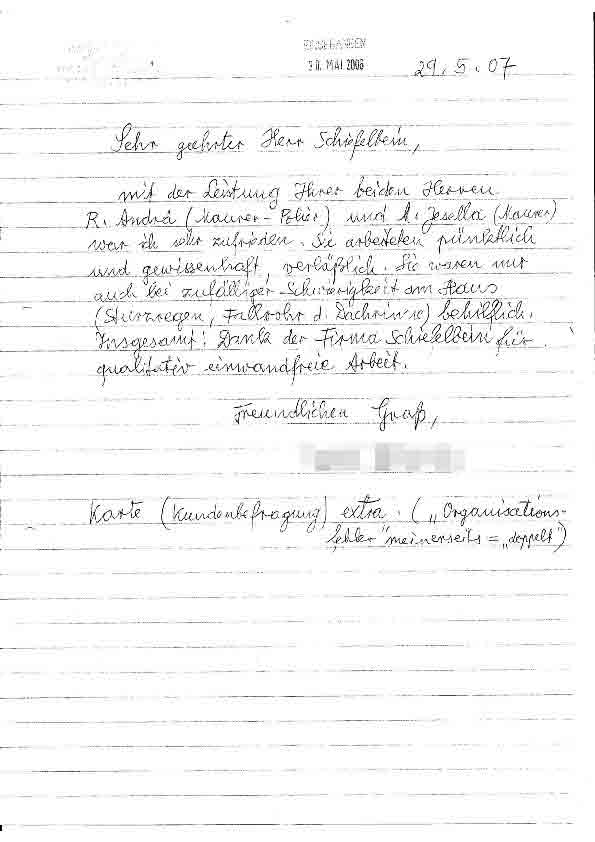 EINGEGANGEN
30. MAI 2006
29.5.07
Sehr geehrter Herr Schiefelbein,
mit der Leistung Ihrer beiden Herren
R. André (Maurer-Polier) und A. Jesella (Maurer)
war ich sehr zufrieden. Sie arbeiteten pünktlich
und gewissenhaft, verläßlich. Sie waren mir
auch bei zufälliger Schwierigkeit am Haus
(Sturzregen, Fallrohr d. Dachrinne) behilflich.
Insgesamt: Dank der Firma Schiefelbein für
qualitativ einwandfreie Arbeit.
Freundlichen Gruß,
Karte (Kundenbefragung) extra. („Organisations-
fehler" meinerseits = „doppelt")